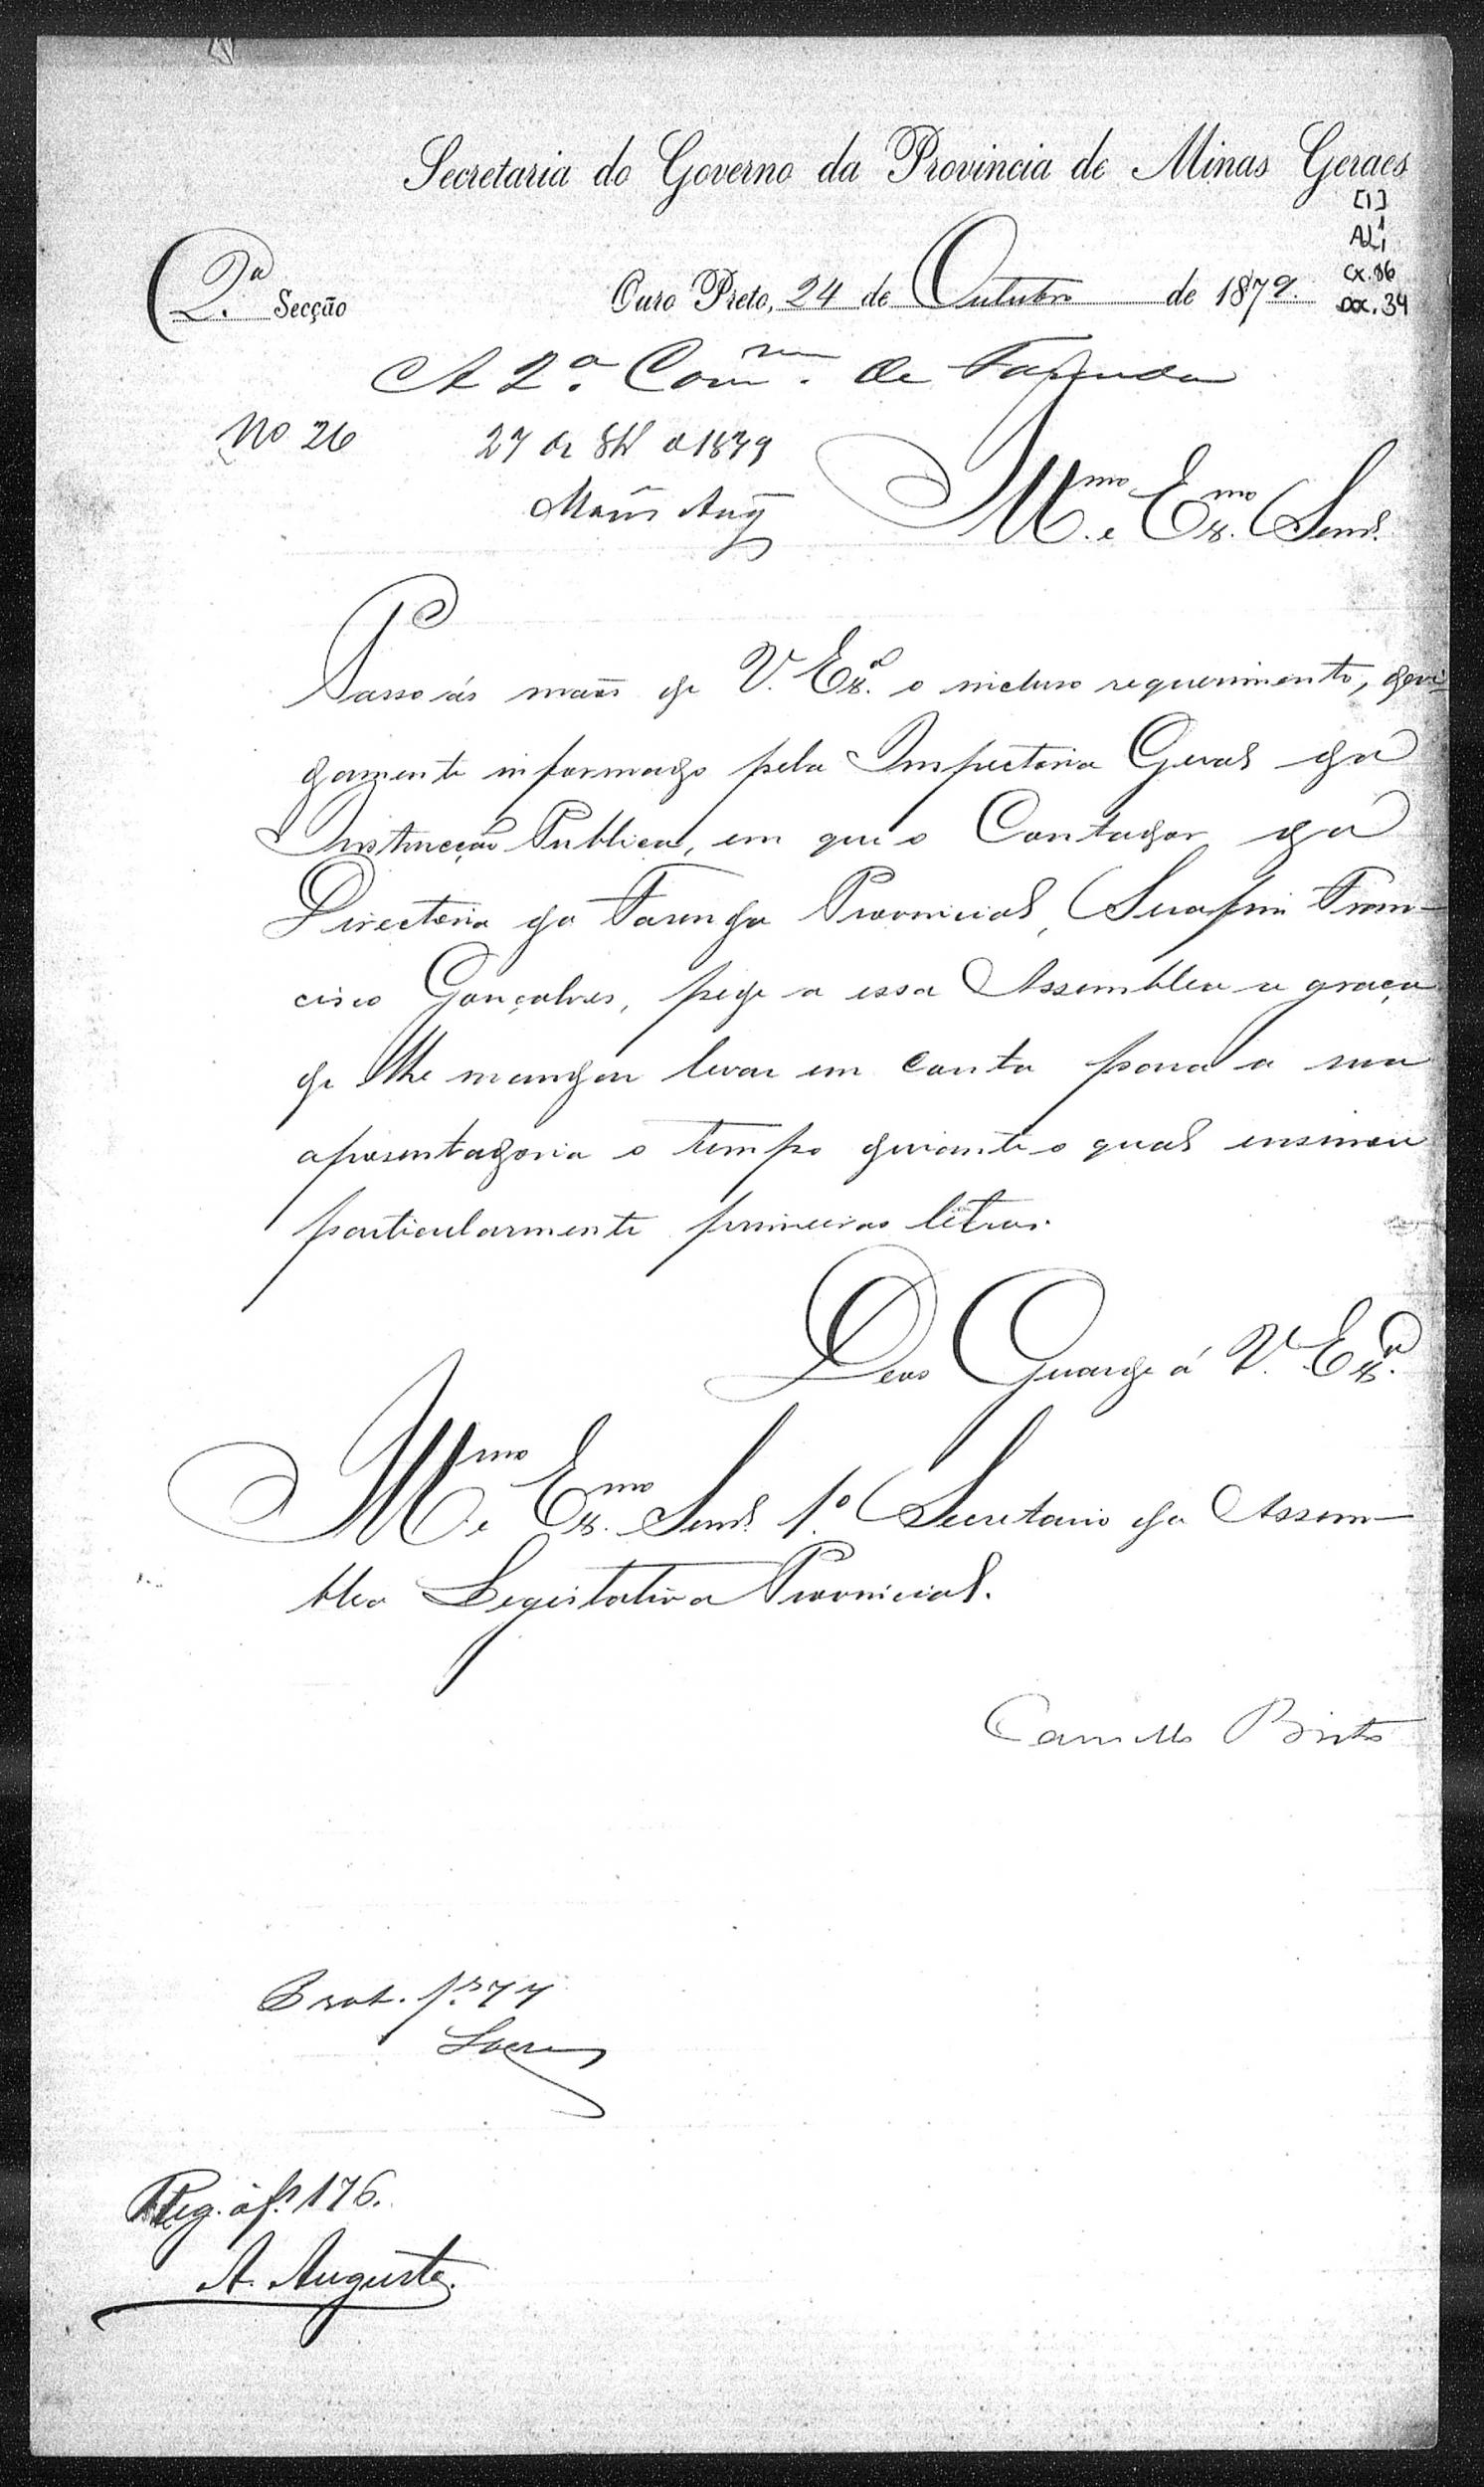 Secretaria do Governo da Provincia de Minas Geraes
[1]
AL1
cx. 86
Doc. 34
2.ª Secção
Ouro Preto, 24 de Outubro de 1879.
A 2.ª Com.m de Fazenda
No 26
27 de 8br.o de 1879
Illmo. e Exmo. Senr.
Passo ás mãos de V. Exª. o incluso requerimento, devi-
damente informado pela Inspectoria Geral da
Instrucção Publica, em que o Contador da
Directoria da Fazenda Provincial, Serafim Fran-
cisco Gonçalves, pede a essa Assemblea a graça
de lhe mandar levar em conta para a sua
aposentadoria o tempo durante o qual ensinou
particularmente primeiras letras.
Deos Guarde á V. Exª.
Illmo. e Exmo. Senr. 1.º Secretario da Assem-
blea Legislativa Provincial.
Camillo Brito
Prot. fs. 77
Reg. á fs. 176.
A. Augusto.